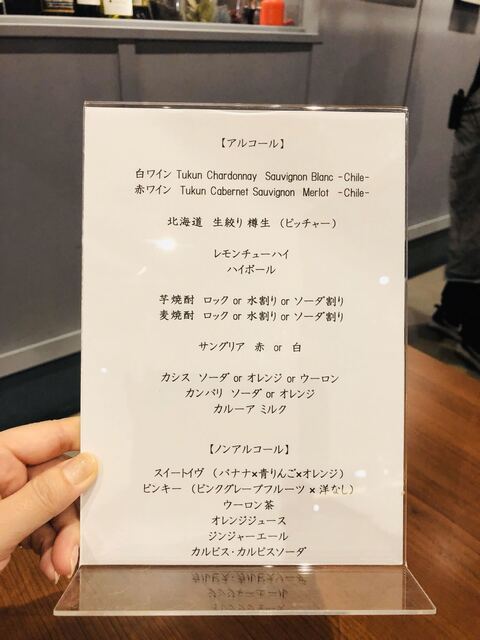 【アルコール】
白ワイン Tukun Chardonnay Sauvignon Blanc -Chile-
赤ワイン Tukun Cabernet Sauvignon Merlot -Chile-
北海道 生絞り 樽生 (ピッチャー)
レモンチューハイ
ハイボール
芋焼酎 ロック or 水割り or ソーダ割り
麦焼酎 ロック or 水割り or ソーダ割り
サングリア 赤 or 白
カシス ソーダ or オレンジ or ウーロン
カンパリ ソーダ or オレンジ
カルーア ミルク
【ノンアルコール】
スイートイヴ (バナナ×青りんご×オレンジ)
ピンキー (ピンクグレープフルーツ × 洋なし)
ウーロン茶
オレンジジュース
ジンジャーエール
カルピス・カルピスソーダ